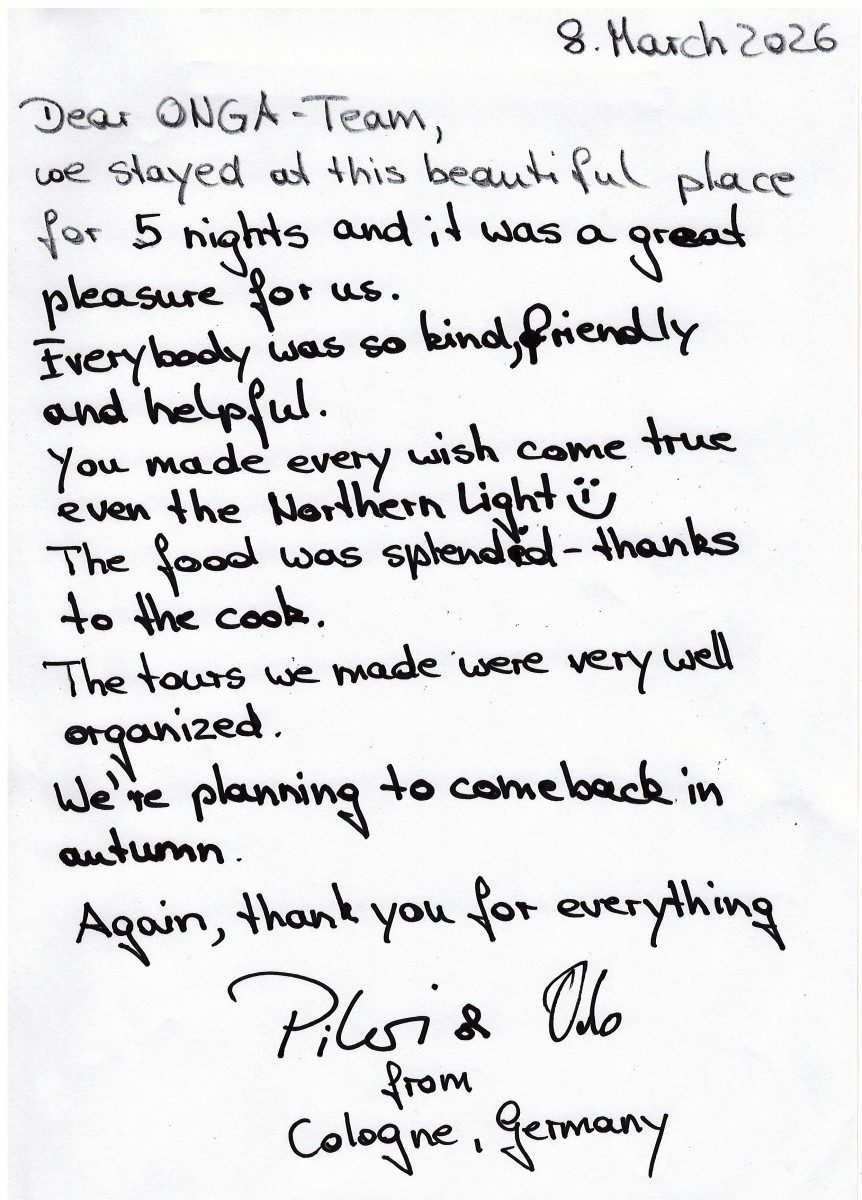 8. March 2026
Dear ONGA-Team,
we stayed at this beautiful place
for 5 nights and it was a great
pleasure for us.
Everybody was so kind, friendly
and helpful.
You made every wish come true
even the Northern Light ü
The food was splendid - thanks
to the cook.
The tours we made were very well
organized.
We're planning to comeback in
autumn.
Again, thank you for everything
&
from
Cologne, Germany